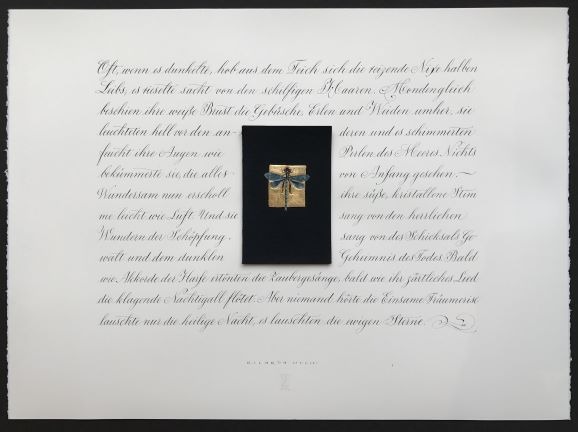 Oft, wenn es dunkelte, hob aus dem Teich sich die reizende Nixe halben
Leibs, es rieselte sacht von den schilfigen Haaren. Mondengleich
beschien ihre weiße Brust die Gebüsche, Erlen und Weiden umher, sie
leuchteten hell vor den an- deren und es schimmerten
feucht ihre Augen wie Perlen des Meeres. Nichts
bekümmerte sie, die alles von Anfang gesehen. ~
Wundersam nun erscholl ihre süße, kristallene Stim
me leicht wie Luft. Und sie sang von den herrlichen
Wundern der Schöpfung, sang von des Schicksals Ge
walt und dem dunklen Geheimnis des Todes. Bald
wie Akkorde der Harfe ertönten die Zaubergesänge, bald wie ihr zärtliches Lied
die klagende Nachtigall flötet. Aber niemand hörte die Einsame Träumerisc
lauschte nur die heilige Nacht, es lauschten die ewigen Sterne.